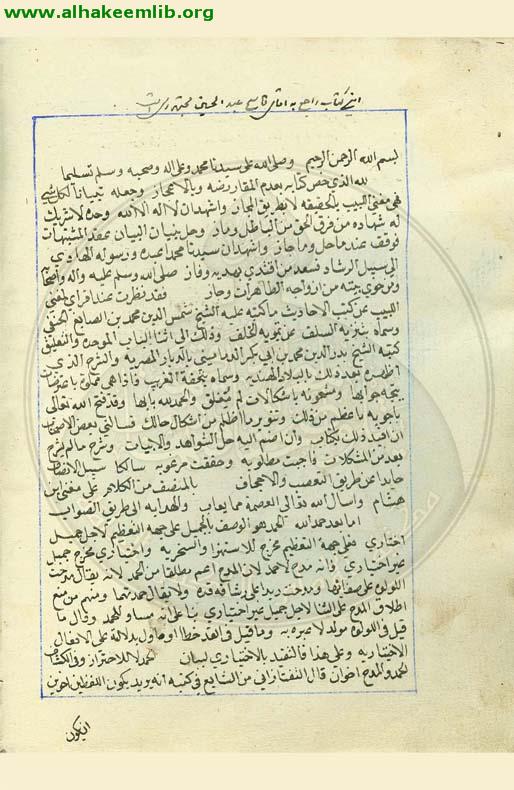 www.alhakeemlib.org
این کتاب راجع به اقای عبد الحسین
بسم الله الرحمن الرحيم وصلى الله على سيدنا محمد وعلى اله وصحبه وسلم تسليما
لله الذي خص كتابه بعدم المعارضه وبالاعجاز وجعله تبيانا لكل شيء
فهو مغنى اللبيب بالحقيقه لا بطريق المجاز واشهد ان لا اله الا الله وحده لا شريك
له شهاده من فرق الحق من الباطل وماز وحل ببنيان البيان عقد المشتبهات
فوقف عند ما حل وما جاز واشهد ان سيدنا محمدا عبده ورسوله الهادي
الى سبيل الرشاد فسعد من اقتدى بهديه وفاز صلى الله وسلم عليه وآله واصحابه
ومن حوى بيته من ازواجه الطاهرات وحاز فقد نظرت عند اقرائي لمغنى
اللبيب عن كتب الاعاريب ما كتبه عليه الشيخ شمس الدين محمد بن الصايغ الحنفى
وسماه بتنزيه السلف عن تمويه الخلف وذلك الى اثنا الباب الموحده والتعليق
كتبه الشيخ بدر الدين محمد بن ابي بكر الدماميني بالديار المصرية والشرح الذي
اظهره بعد ذلك بالبلاد الهنديه وسماه بتحفة الغريب فاذا هى مملوة باعتراضات
يتجه جوابها ومشحونة باشكالات لم تغلق والحمد لله بابها وقد فتح الله تعالى
باجوبة ما عظم من ذلك وتنوير ما اظلم من اشكال حالك فسالني بعض الاصحاب
ان افيد ذلك بكتاب وان اضم اليه حل الشواهد والابيات وشرح ما لم يشرح
بعد من المشكلات فاجبت مطلوبه وحققت مرغوبه سالكا سبيل الانصاف
حايدا عن طريق التعصب والاجحاف بالمنصف من الكلام على مغنى ابن
هشام واسال الله تعالى العصمة مما يعاب والهدايه الى طريق الصواب
اما بعد حمد الله الحمد هو الوصف بالجميل على جهة التعظيم لاجل جميل
اختياري فعلى جهة التعظيم مخرج للاستهزا والسخريه واختياري مخرج جميل
غير اختياري فانه مدح لا حمد لان المدح اعم مطلقا من الحمد لانه يقال مدحت
اللولوة على صفائها ومدحت زيدا على رشاقة قده ولا يقال حمدتهما ومنهم من منع
اطلاق المدح على الثنا لاجل جميل غير اختياري بنا على انه مساو للحمد وقال ما
قيل في اللولوة مولد لا عبرة به وما قيل في القد خطا او ماول بدلالة على الافعال
الاختياريه وعلى هذا فالتقييد بالاختياري لبيان الحمد لا للاحتراز وفى الكشاف
الحمد والمدح اخوان قال التفتازاني من الشايع في كتبه انه يريد بكون اللفظين اخوين
ان يكون